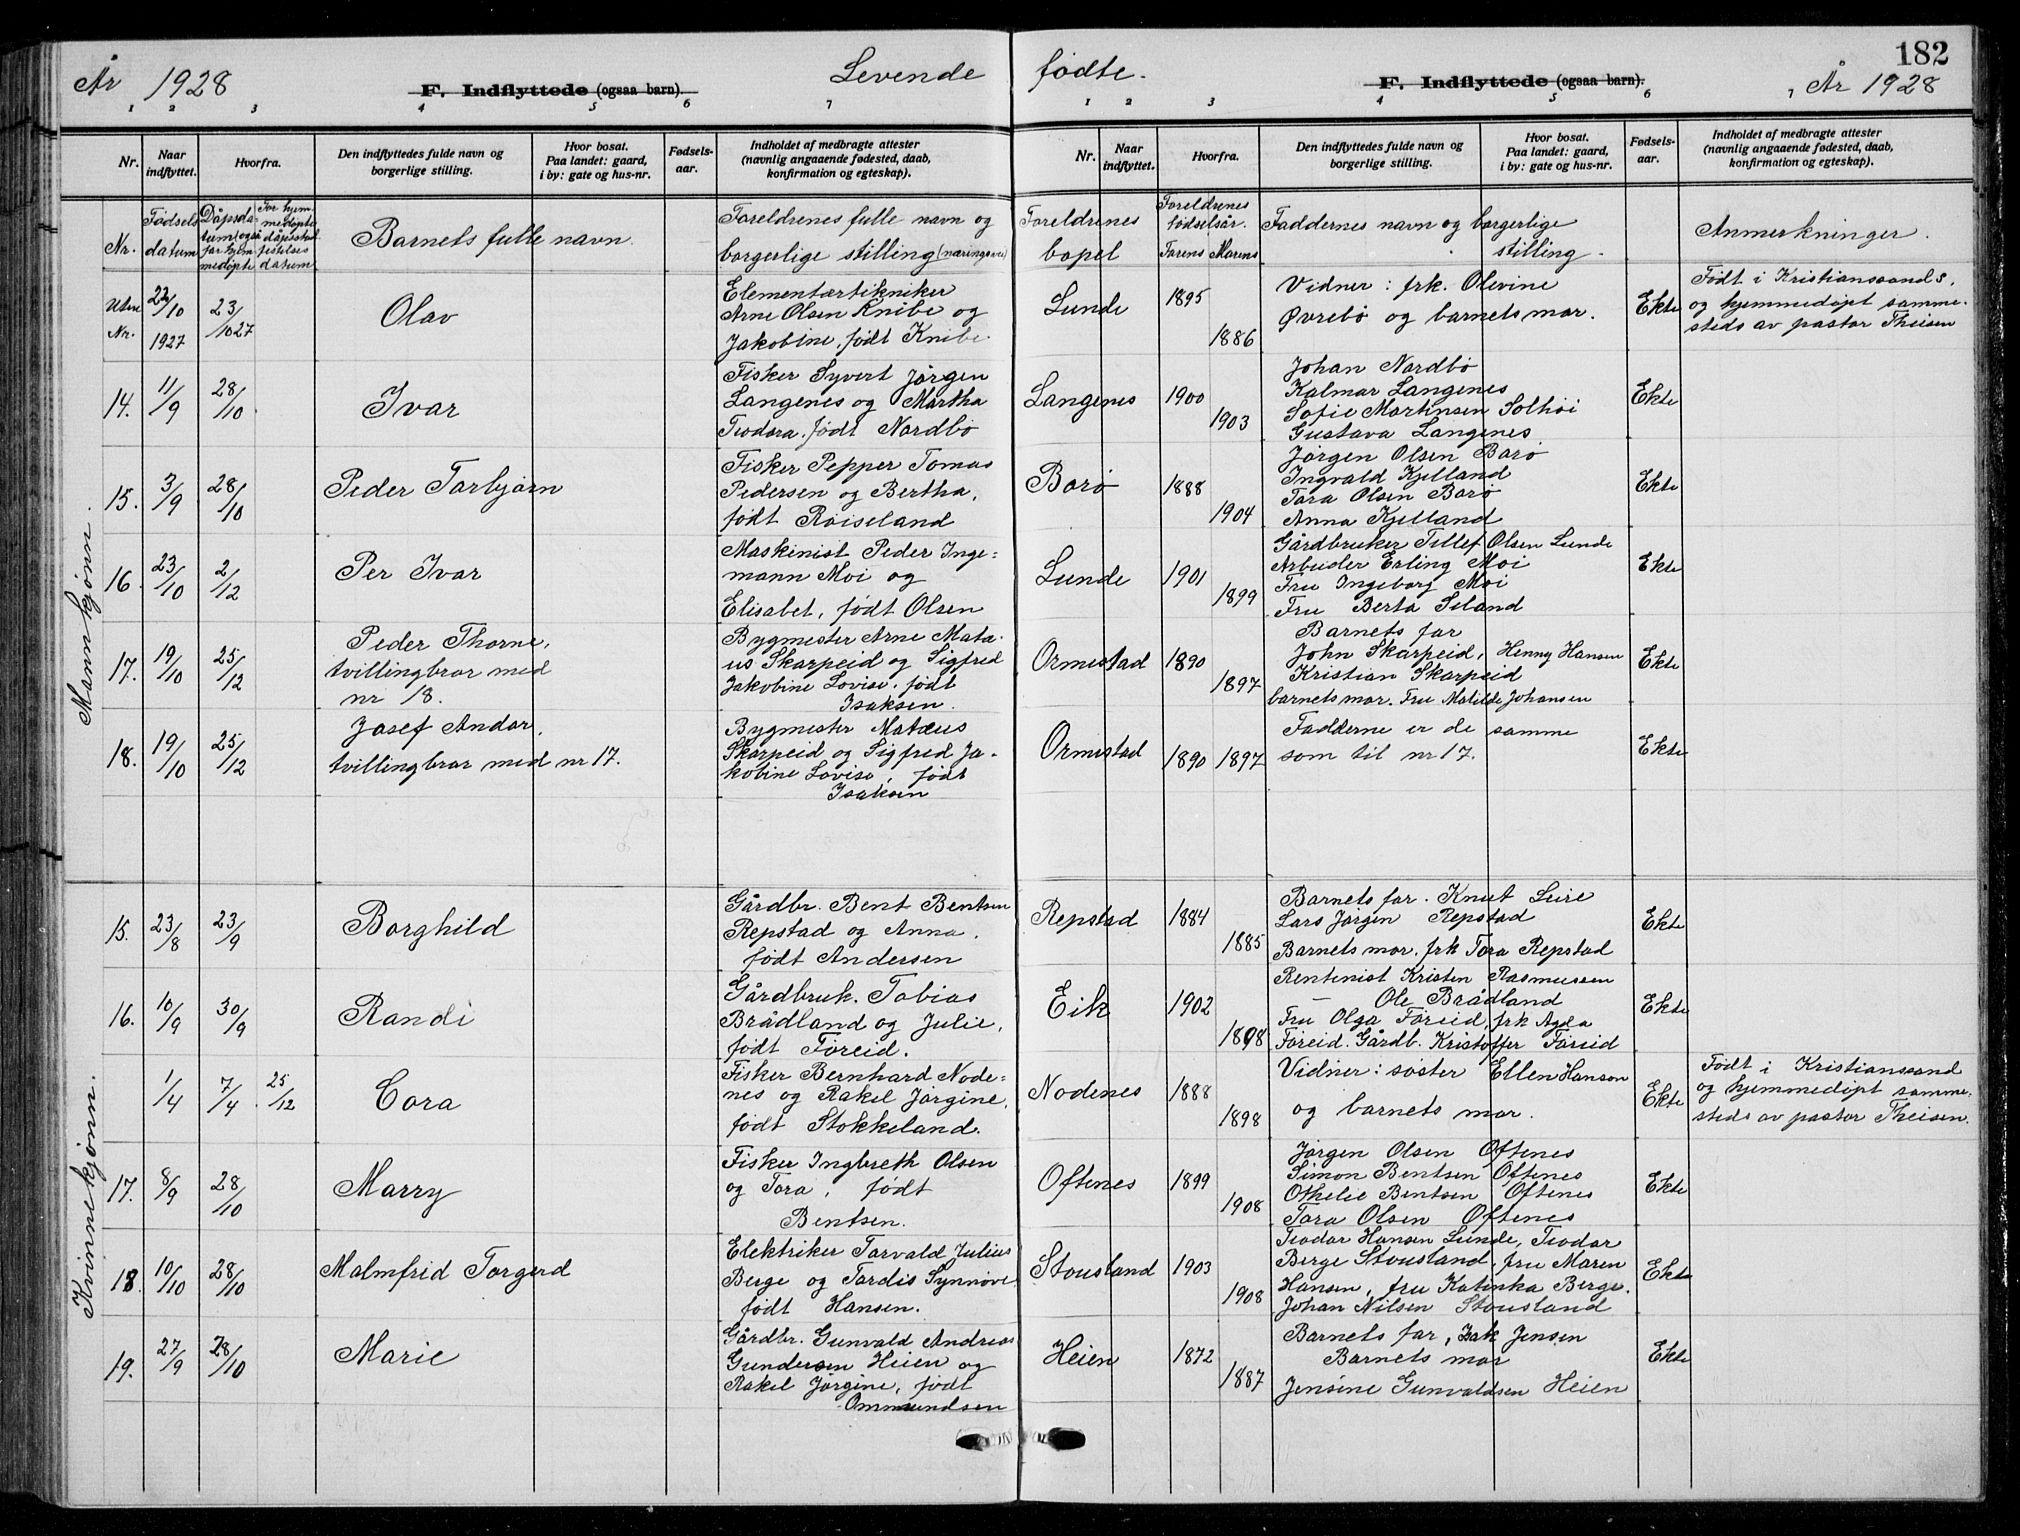 År 1928
F. Indflyttede (ogsaa barn).
Levende
fødte.
F. Indflyttede (ogsaa barn).
182
År 1928
1 2 3 4 5 6 7
1 2 3 4 5 6 7
Nr.
Naar indflyttet.
Hvorfra.
Den indflyttedes fulde navn og borgerlige stilling.
Hvor bosat. Paa landet: gaard, i by: gate og hus-nr.
Fødsels-aar.
Indholdet af medbragte attester (navnlig angaaende fødested, daab, konfirmation og egteskap).
Nr.
Naar indflyttet.
Hvorfra.
Den indflyttedes fulde navn og borgerlige stilling.
Hvor bosat. Paa landet: gaard, i by: gate og hus-nr.
Fødsels-aar.
Indholdet af medbragte attester (navnlig angaaende fødested, daab, konfirmation og egteskap).
Nr.
Fødsels datum
Dåpsda-
tum (også
for hjem
medøpte
For hjem-
medøpte
dåpsstad
festelses
datum
Barnets fulle navn.
Foreldrenes fulle navn og
borgerlige stilling (næringsvei)
Foreldrenes
bopel
Foreldrenes
fødselsår.
Farens Morens
Faddernes navn og borgerlige
stilling.
Anmerkninger.
Mannkjønn.
Uten
Nr.
22/10
1927
23/10 27
Olav
Elementærtikniker
Arne Olsen Knibe og
Jakobine, født Knibe.
Lunde
1895
1886
Vidner: frk. Olevine
Øvrebö og barnets mor.
Ekte
Født i Kristianssand S,
og hjemmedøpt samme-
steds av pastor Theisen
14.
11/9
28/10.
Ivar
Fisker Syvert Jörgen
Langenes og Martha
Teodora, født Nordbö
Langenes
1900
1903
Johan Nordbö
Kalmar Langenes
Sofie Martinsen Solhöi
Gustava Langenes
Ekte
15.
3/9
28/10
Peder Torbjørn
Fisker Pepper Tomas
Pedersen og Bertha,
født Röiseland
Borö
1888
1904
Jörgen Olsen Borö
Ingvald Kjelland
Tora Olsen Borö
Anna Kjelland
Ekte
16.
23/10
2/12
Per Ivar
Maskinist Peder Inge=
mann Moi og
Elisabet, født Olsen
Lunde
1901
1899
Gårdbruker Tellef Olsen Lunde
Arbeider Erling Moi
Fru Ingeborg Moi
Fru Berta Seland
Ekte
17.
19/10
25/12
Peder Thorne,
tvillingbror med
nr 18.
Bygmester Arne Matæ-
us Skarpeid og Sigfred
Jakobine Lovise, født
Isaksen.
Ormestad
1890
1897
Barnets far
John Skarpeid, Henny Hansen
Kristian Skarpeid
barnets mor. Fru Matilde Johansen
Ekte
18.
19/10
25/12
Josef Andor,
tvillingbror med nr 17.
Bygmester Matæus
Skarpeid og Sigfred Ja-
kobine Lovise, født
Isaksen
Ormestad
1890 1897
Fadderne er de samme
som til nr 17.
Ekte
Kvinnekjönn.
15.
23/8
23/9
Borghild
Gårdbr. Bent Bentsen
Repstad og Anna,
født Andersen
Repstad
1884
1885
Barnets far. Knut Leire
Lars Jörgen Repstad
Barnets mor. frk Tora Repstad
Ekte
16.
10/9
30/9
Randi
Gårdbruk. Tobias
Brådland og Julie,
født Föreid.
Eik
1902
1898
Rentenist Kristen Rasmussen
— Ole Brådland
Fru Olga Föreid, frk Agda
Föreid. Gårdb. Kristoffer Föreid
Ekte
1/4
7/4
25/12
Cora
Fisker Bernhard Node=
nes og Rakel Jörgine,
født Stokkeland.
Nodenes
1888
1898
Vidner: söster Ellen Hanson
og barnets mor.
Ekte
Født i Kristianssand
og hjemmedøpt samme-
steds av pastor Theisen.
17.
8/9
28/10
Marry
Fisker Ingbreth Olsen
og Tora, født
Bentsen.
Oftenes
1899
1908
Jörgen Olsen Oftenes
Simon Bentsen Oftenes
Othelie Bentsen Oftenes
Tora Olsen Oftenes
Ekte
18.
10/10
28/10
Malmfrid Torgerd
Elektriker Torvald Julius
Berge og Tordis Synnöve
født Hansen.
Stousland
1903
1908
Teodor Hansen Lunde, Teodor
Berge Stousland, fru Maren
Hansen, fru Katinka Berge.
Johan Nilsen Stousland
Ekte
19.
27/9
28/10
Marie
Gårdbr. Gunvald Andreas
Gundersen Heien og
Rakel Jörgine, født
Ommundsen
Heien
1872
1887
Barnets far, Isak Jensen
Barnets mor
Jensine Gunvaldsen Heien
Ekte